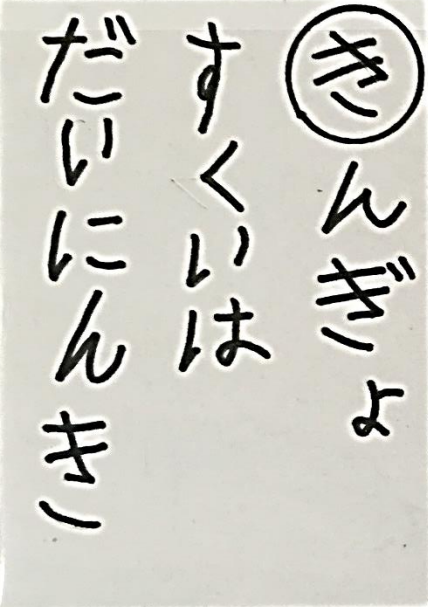 きんぎょ
すくいは
だいにんき